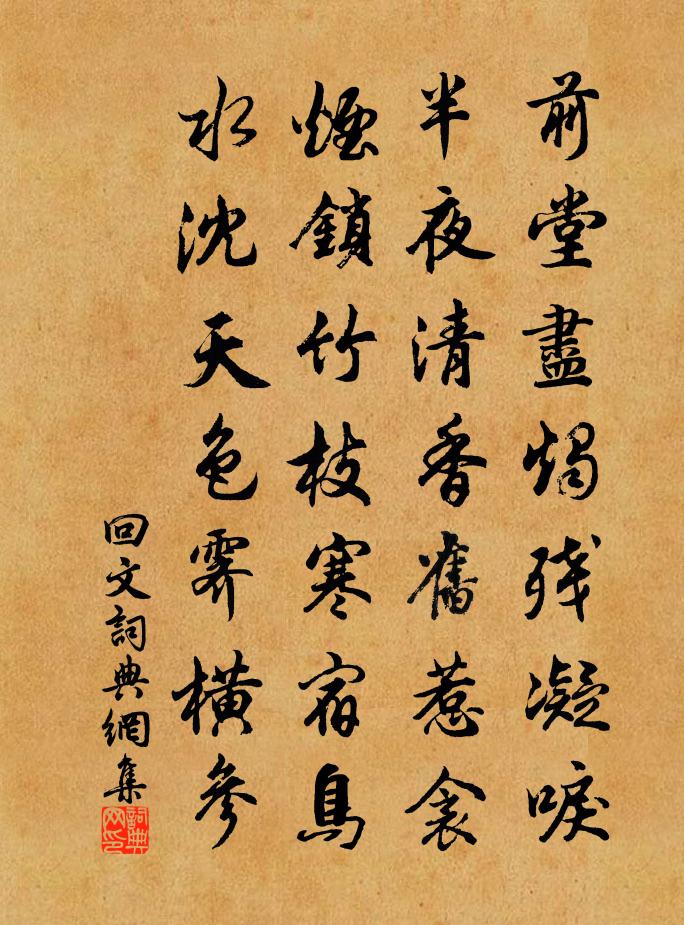 前堂盡燭残凝唳
半夜清香舊惹衾
煙鎖竹枝寒宿鳥
水沈天色霽橫參
回文詞典網集
詞典
网印